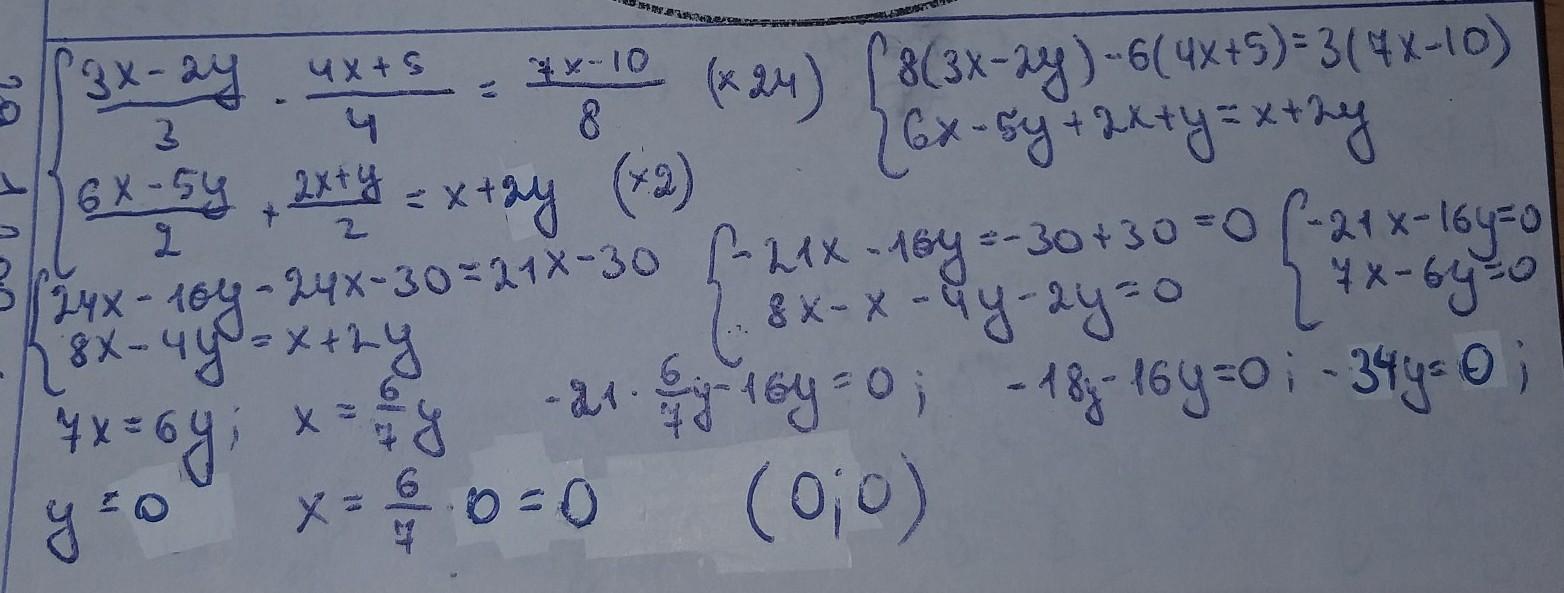 { (3x-2y)/3 - (4x+5)/4 = (7x-10)/8 (×24)
(6x-5y)/2 + (2x+y)/2 = x+2y (×2)
{ 8(3x-2y)-6(4x+5)=3(7x-10)
6x-5y+2x+y=x+2y
{ 24x-16y-24x-30=21x-30
8x-4y=x+2y
{ -21x-16y=-30+30=0
8x-x-4y-2y=0
{ -21x-16y=0
7x-6y=0
7x=6y; x=6/7 y -21·6/7 y-16y=0; -18y-16y=0; -34y=0;
y=0 x=6/7·0=0 (0;0)